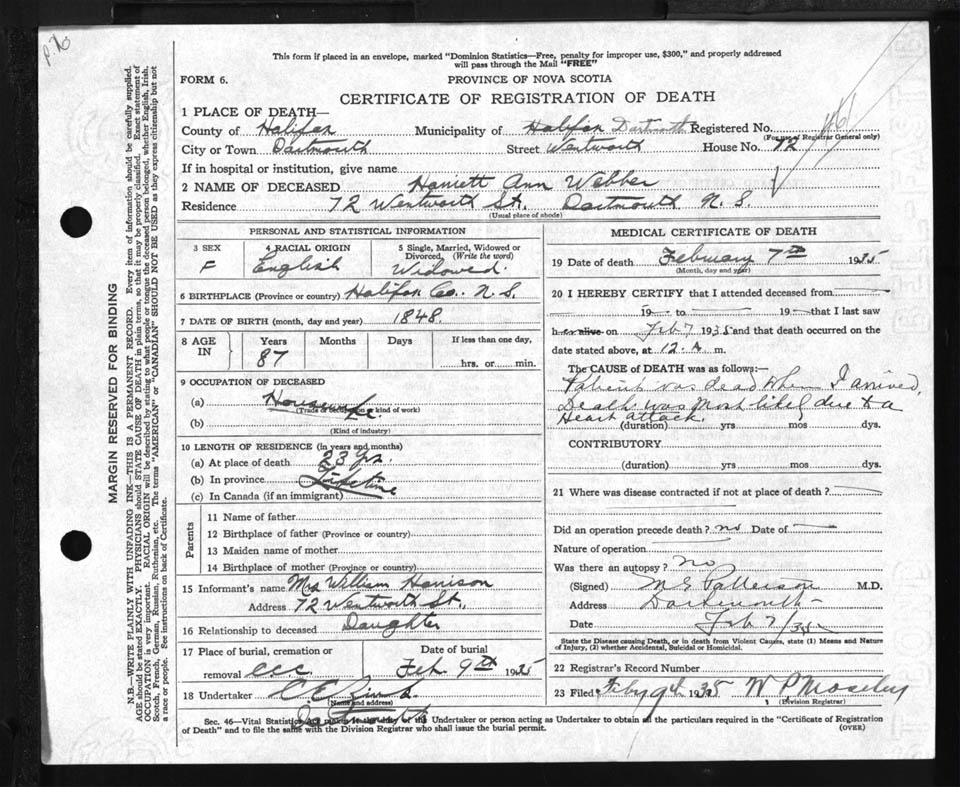 P.76
This form if placed in an envelope, marked "Dominion Statistics—Free, penalty for improper use, $300," and properly addressed
will pass through the Mail "FREE"
FORM 6.
PROVINCE OF NOVA SCOTIA
CERTIFICATE OF REGISTRATION OF DEATH
1 PLACE OF DEATH—
County of Halifax Municipality of Halifax Dartmouth Registered No.
(For use of Registrar General only)
City or Town Dartmouth Street Wentworth House No. 72
If in hospital or institution, give name
2 NAME OF DECEASED Harriett Ann Webber
Residence 72 Wentworth St. Dartmouth N. S.
(Usual place of abode)
PERSONAL AND STATISTICAL INFORMATION
3 SEX F
4 RACIAL ORIGIN English
5 Single, Married, Widowed or Divorced, (Write the word) Widowed.
6 BIRTHPLACE (Province or country) Halifax Co. N. S.
7 DATE OF BIRTH (month, day and year) 1848.
8 AGE IN Years 87 Months Days If less than one day, hrs. or min.
9 OCCUPATION OF DECEASED
(a) Housewife
(Trade or occupation or kind of work)
(b)
(Kind of industry)
10 LENGTH OF RESIDENCE (in years and months)
(a) At place of death 23 yrs.
(b) In province Lifetime
(c) In Canada (if an immigrant)
Parents
11 Name of father
12 Birthplace of father (Province or country)
13 Maiden name of mother
14 Birthplace of mother (Province or country)
15 Informant's name Mrs William Harrison
Address 72 Wentworth St.,
16 Relationship to deceased Daughter
17 Place of burial, cremation or removal Date of burial Feb 9th 1935
18 Undertaker
(Name and address)
Dartmouth
MEDICAL CERTIFICATE OF DEATH
19 Date of death February 7th 1935
(Month, day and year)
20 I HEREBY CERTIFY that I attended deceased from
19 to 19 that I last saw
h er alive on Feb 7 1935 and that death occurred on
date stated above, at 12. A m.
The CAUSE of DEATH was as follows:—
Patient was dead when I arrived.
Death was most likely due to a
Heart attack.
(duration) yrs mos dys.
CONTRIBUTORY
(duration) yrs mos dys.
21 Where was disease contracted if not at place of death?
Did an operation precede death? no Date of
Nature of operation
Was there an autopsy? No
(Signed) M G Patterson M.D.
Address Dartmouth
Date Feb 7/35
State the Disease causing Death, or in death from Violent Causes, state (1) Means and Nature
of Injury, (2) whether Accidental, Suicidal or Homicidal.
22 Registrar's Record Number
23 Filed Feby 9th 1935 W P Moseley
(Division Registrar)
Sec. 46—Vital Statistics Act makes it the duty of the Undertaker or person acting as Undertaker to obtain all the particulars required in the "Certificate of Registration
of Death" and to file the same with the Division Registrar who shall issue the burial permit.
(OVER)
MARGIN RESERVED FOR BINDING
N.B.—WRITE PLAINLY WITH UNFADING INK—THIS IS A PERMANENT RECORD. Every item of information should be carefully supplied.
AGE should be stated EXACTLY. PHYSICIANS should STATE CAUSE OF DEATH in plain terms, so that it may be properly classified. Exact statement of
OCCUPATION is very important. RACIAL ORIGIN will be described by stating to what people or tongue the deceased person belonged, whether English, Irish,
Scotch, French, German, Russian, Ruthenian, etc. The terms "AMERICAN" or "CANADIAN" SHOULD NOT BE USED as they express citizenship but not
a race or people. See instructions on back of Certificate.